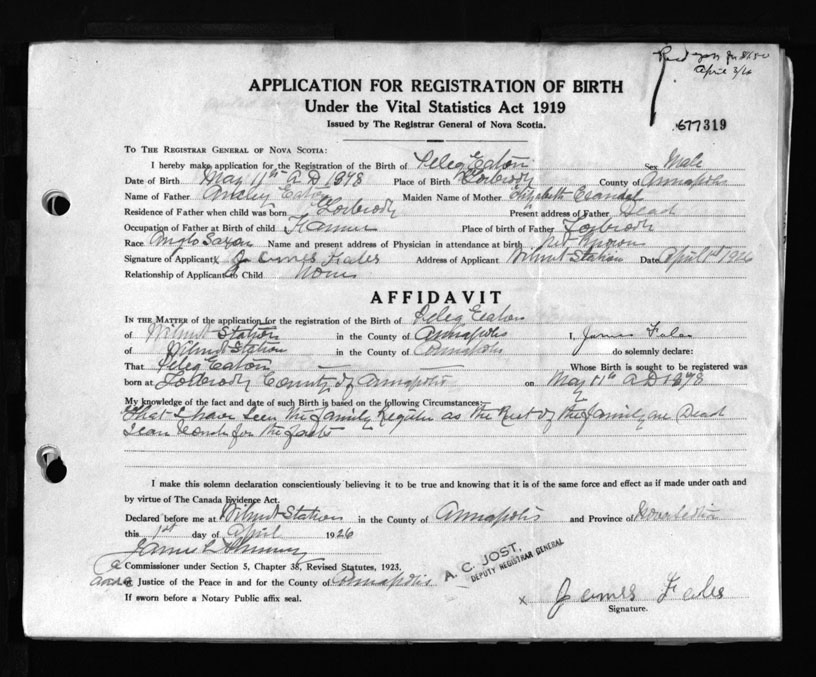 April 3/26
APPLICATION FOR REGISTRATION OF BIRTH
Under the Vital Statistics Act 1919
Issued by The Registrar General of Nova Scotia.
677319
TO THE REGISTRAR GENERAL OF NOVA SCOTIA:
I hereby make application for the Registration of the Birth of Peleg Eaton Sex Male
Date of Birth May 11th A D 1878 Place of Birth County of Annapolis
Name of Father Eaton Maiden Name of Mother Elizabeth
Residence of Father when child was born Present address of Father Dead
Occupation of Father at Birth of child Farmer Place of birth of Father
Race Anglo Saxon Name and present address of Physician in attendance at birth Not Known
Signature of Applicant x James Fales Address of Applicant Wilmot Station Date April 1st 1926
Relationship of Applicant to Child None
AFFIDAVIT
IN THE MATTER of the application for the registration of the Birth of Peleg Eaton
of Wilmot Station in the County of Annapolis I, James Fales
of Wilmot Station in the County of Annapolis do solemnly declare:
That Peleg Eaton Whose Birth is sought to be registered was
born at County of Annapolis on May 11th A D 1878
My knowledge of the fact and date of such Birth is based on the following Circumstances:
That I have seen the family Register as the Rest of the family are Dead
I can for the facts
I make this solemn declaration conscientiously believing it to be true and knowing that it is of the same force and effect as if made under oath and
by virtue of The Canada Evidence Act.
Declared before me at Wilmot Station in the County of Annapolis and Province of Nova Scotia
this 1st day of April 1926
James
A Commissioner under Section 5, Chapter 38, Revised Statutes, 1923.
a Justice of the Peace in and for the County of Annapolis
A. C. JOST,
DEPUTY REGISTRAR GENERAL
If sworn before a Notary Public affix seal.
x James Fales
Signature.